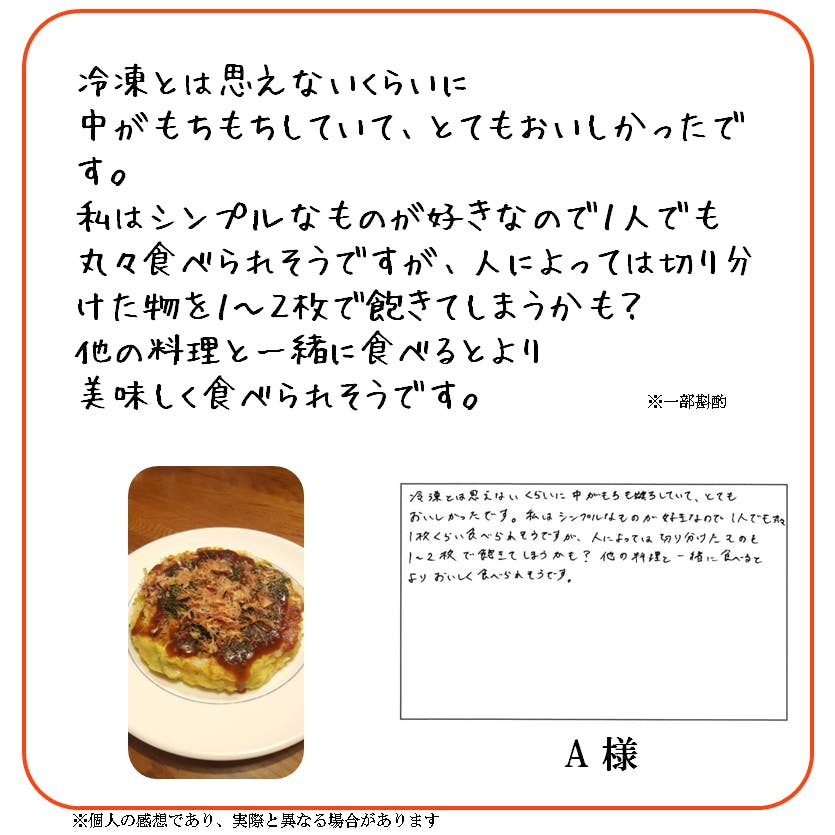 冷凍とは思えないくらいに
中がもちもちしていて、とてもおいしかったで
す。
私はシンプルなものが好きなので1人でも
丸々食べられそうですが、人によっては切り分
けた物を1～2枚で飽きてしまうかも？
他の料理と一緒に食べるとより
美味しく食べられそうです。
※一部斟酌
冷凍とは思えないくらいに中がもちもちしていて、とても
おいしかったです。私はシンプルなものが好きなので1人でも
1枚くらい食べられそうですが、人によっては切り分けたものも
1～2枚で飽きてしまうかも？他の料理と一緒に食べると
よりおいしく食べられそうです。
A 様
※個人の感想であり、実際と異なる場合があります